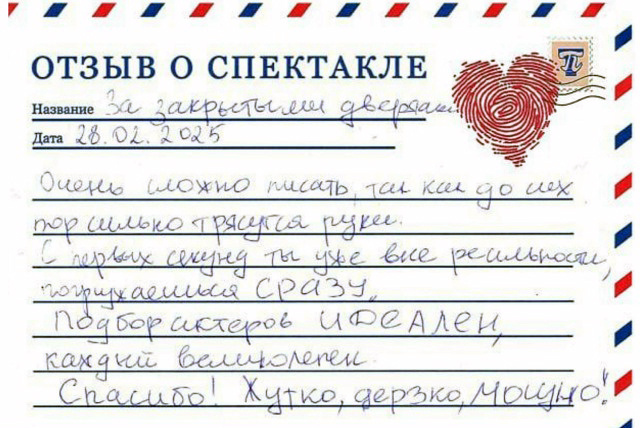 ОТЗЫВ О СПЕКТАКЛЕ
Название За закрытыми дверями
Дата 28.02.2025
Очень сложно писать, так как до сих
пор сильно трясутся руки.
С первых секунд ты уже вне реальности,
погружаешься СРАЗУ.
Подбор актеров ИДЕАЛЕН,
каждый великолепен.
Спасибо! Жутко, дерзко, мощно!